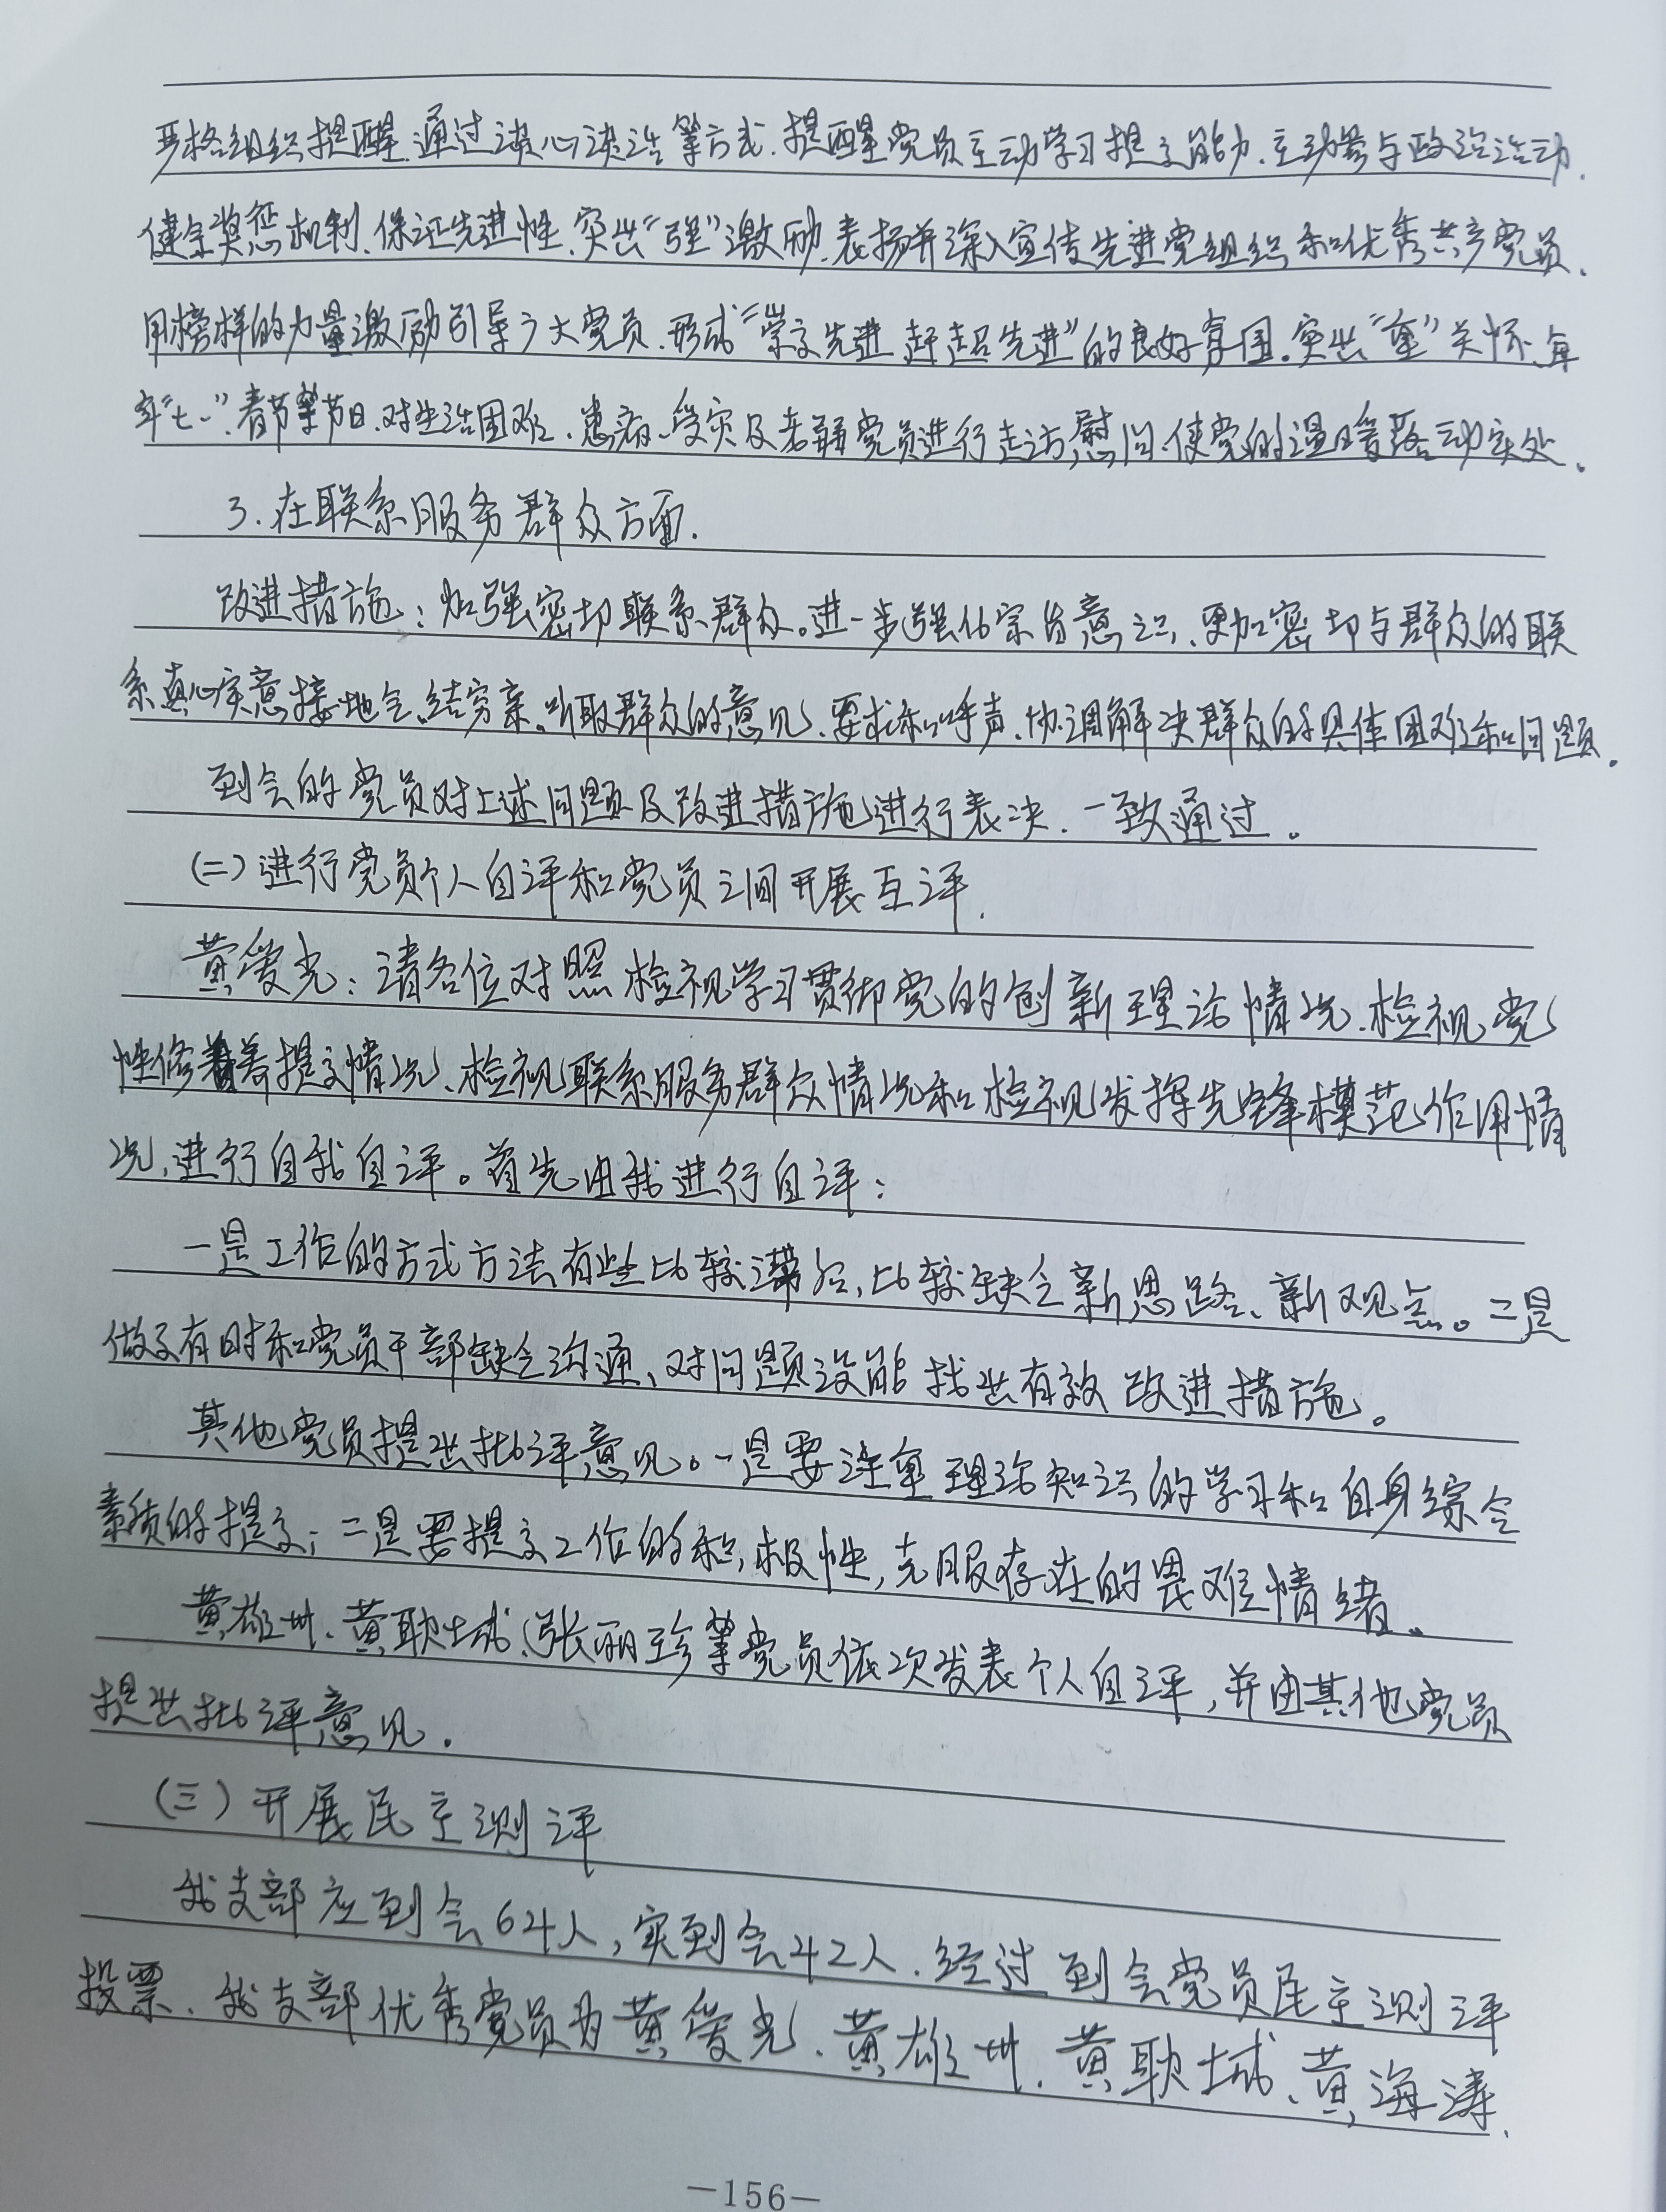 严格组织提醒.通过谈心谈话等方式.提醒党员主动学习提高能力.主动参与政治活动.
健全奖惩机制.保证先进性.突出“强”激励.表扬并深入宣传先进党组织和优秀共产党员.
用榜样的力量激励引导广大党员.形成“崇尚先进 赶超先进”的良好氛围.突出“重”关怀.每
年“七一”.春节等节日.对生活困难、患病、受灾及老弱党员进行走访慰问.使党的温暖落动实处.
3.在联系服务群众方面.
改进措施:加强密切联系群众。进一步强化宗旨意识.更加密切与群众的联
系真心实意接地气.结穷亲.听取群众的意见、要求和呼声.协调解决群众的具体困难和问题.
到会的党员对上述问题及改进措施进行表决.一致通过。
(二)进行党员个人自评和党员之间开展互评.
黄爱光:请各位对照检视学习贯彻党的创新理论情况.检视党
性修养提高情况、检视联系服务群众情况和检视发挥先锋模范作用情
况,进行自我自评。首先由我进行自评:
一是工作的方式方法有些比较滞后,比较缺乏新思路、新观点。二是
做了有时和党员干部缺乏沟通、对问题没能找出有效改进措施。
其他党员提出批评意见。一是要注重理论知识的学习和自身综合
素质的提高;二是要提高工作的积极性,克服存在的畏难情绪。
黄雄卅、黄耿城、张丽珍等党员依次发表个人自评,并由其他党员
提出批评意见.
(三)开展民主测评
我支部应到会64人,实到会42人.经过到会党员民主测评
投票、我支部优秀党员为黄爱光、黄雄卅.黄耿城、黄海涛.
—156—